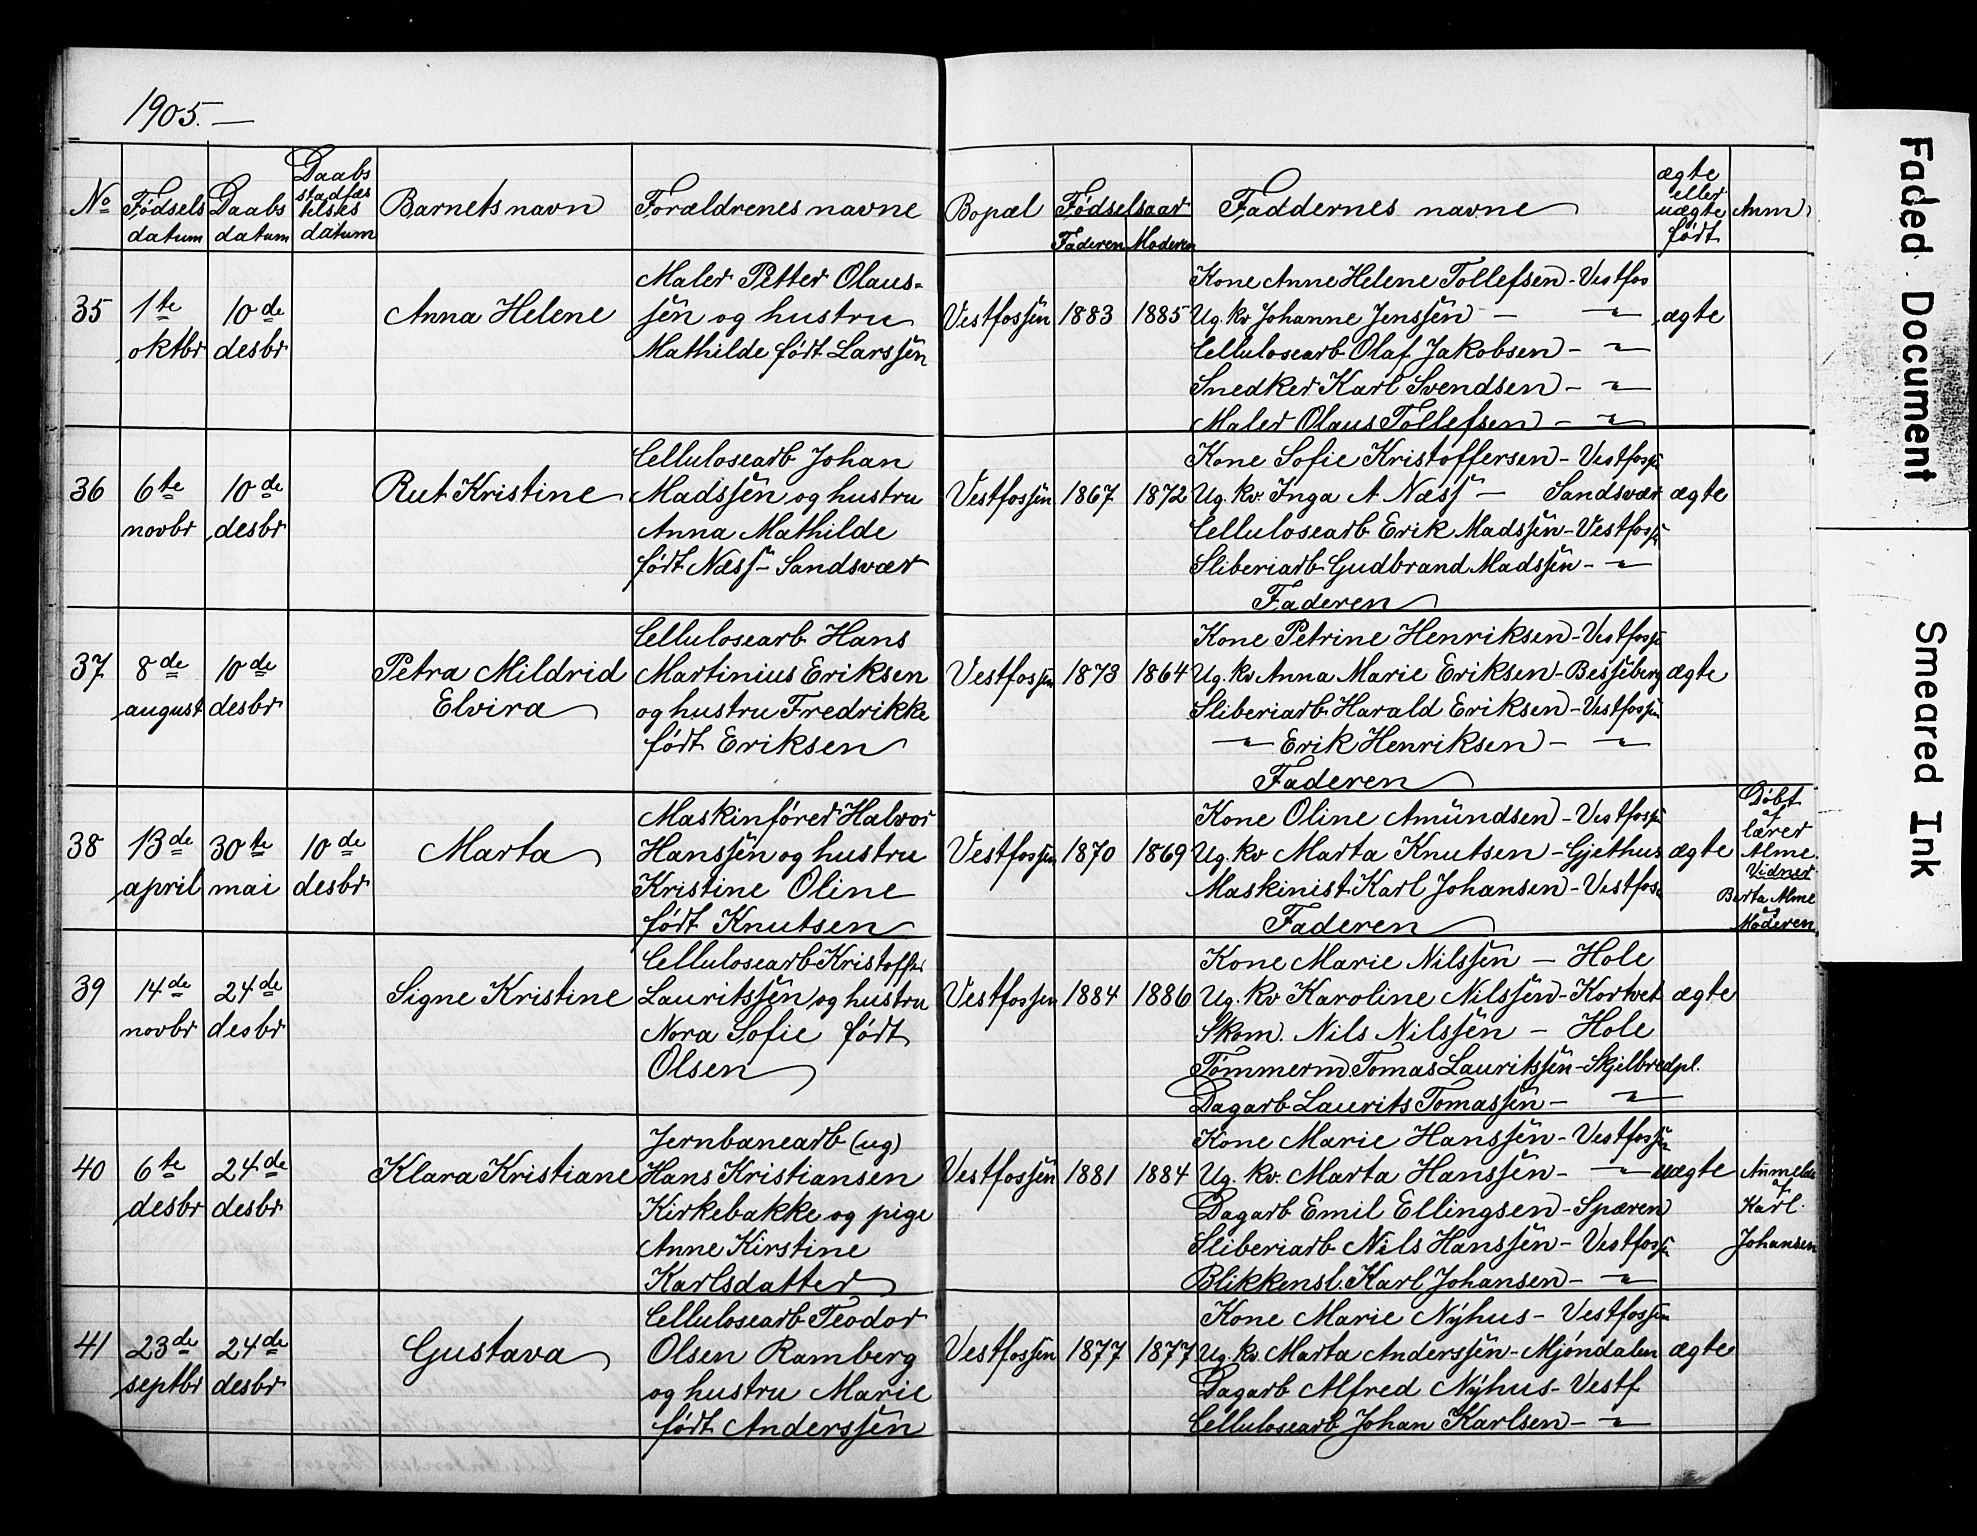 1905. —
No
Fødsels
datum
Daabs
datum
Daabs
stadfæs
telses
datum
Barnets navn
Forældrenes navne
Bopæl
Fødselsaar
Faderen
Moderen
Faddernes navne
ægte
eller
uægte
født
Anm
35
1te
oktbr
10de
desbr
Anna Helene
Maler Petter Olaus-
sen og hustru
Mathilde født Larssen
Vestfossen
1883
1885
Kone Anne Helene Tollefsen - Vestfos
Ug. kv Johanne Jenssen — — " —
Cellulosearb Olaf Jakobsen - — " —
Snedker Karl Svendsen - — " —
Maler Olaus Tollefsen - — " —
ægte
36
6te
novbr
10de
desbr
Rut Kristine
Cellulosearb Johan
Madssen og hustru
Anna Mathilde
født Næss - Sandsvær
Vestfossen
1867
1872
Kone Sofie Kristoffersen - Vestfossen
Ug. kv. Inga A Næss - Sandsvær
Cellulosearb Erik Madssen - Vestfossen
Sliberiarb Gudbrand Madssen - — " —
Faderen
ægte
37
8de
august
10de
desbr
Petra Mildrid
Elvira
Cellulosearb Hans
Martinius Eriksen
og hustru Fredrikke
født Eriksen
Vestfossen
1873
1864
Kone Petrine Henriksen - Vestfossen
Ug. kv Anna Marie Eriksen - Besseberg
Sliberiarb Harald Eriksen - Vestfossen
— " — Erik Henriksen - — " —
Faderen
ægte
38
13de
april
30te
mai
10de
desbr
Marta
Maskinfører Halvor
Hanssen og hustru
Kristine Oline
født Knutsen
Vestfossen
1870
1869
Kone Oline Amundsen - Vestfossen
Ug. kv Marta Knutsen - Gjethus
Maskinist Karl Johansen - Vestfoss
Faderen
ægte
Døbt
af
lærer
Alme.
Vidner
Berta Alme
og
Moderen
39
14de
novbr
24de
desbr
Signe Kristine
Cellulosearb Kristoffer
Lauritssen og hustru
Nora Sofie født
Olsen
Vestfossen
1884
1886
Kone Marie Nilssen - Hole
Ug. kv Karoline Nilssen - Kortvet
Skom. Nils Nilssen - Hole
Tømmerm Tomas Lauritssen - Skjelbredpl.
Dagarb Laurits Tomassen - — " —
ægte
40
6te
desbr
24de
desbr
Klara Kristiane
Jernbanearb (ug)
Hans Kristiansen
Kirkebakke og pige
Anne Kirstine
Karlsdatter
Vestfossen
1881
1884
Kone Marie Hanssen - Vestfossen
Ug. kv. Marta Hanssen - — " —
Dagarb Emil Ellingsen - Spæren
Sliberiarb Nils Hanssen - Vestfossen
Blikkensl. Karl Johansen - — " —
uægte
Anmeldt
af
Karl
Johansen
41
23de
septbr
24de
desbr
Gustava
Cellulosearb Teodor
Olsen Ramberg
og hustru Marie
født Anderssen
Vestfossen
1877
1877
Kone Marie Nyhus - Vestfossen
Ug. kv. Marta Anderssen - Mjøndalen
Dagarb Alfred Nyhus - Vestf
Cellulosearb Johan Karlsen - — " —
ægte
Faded Document
Smeared Ink